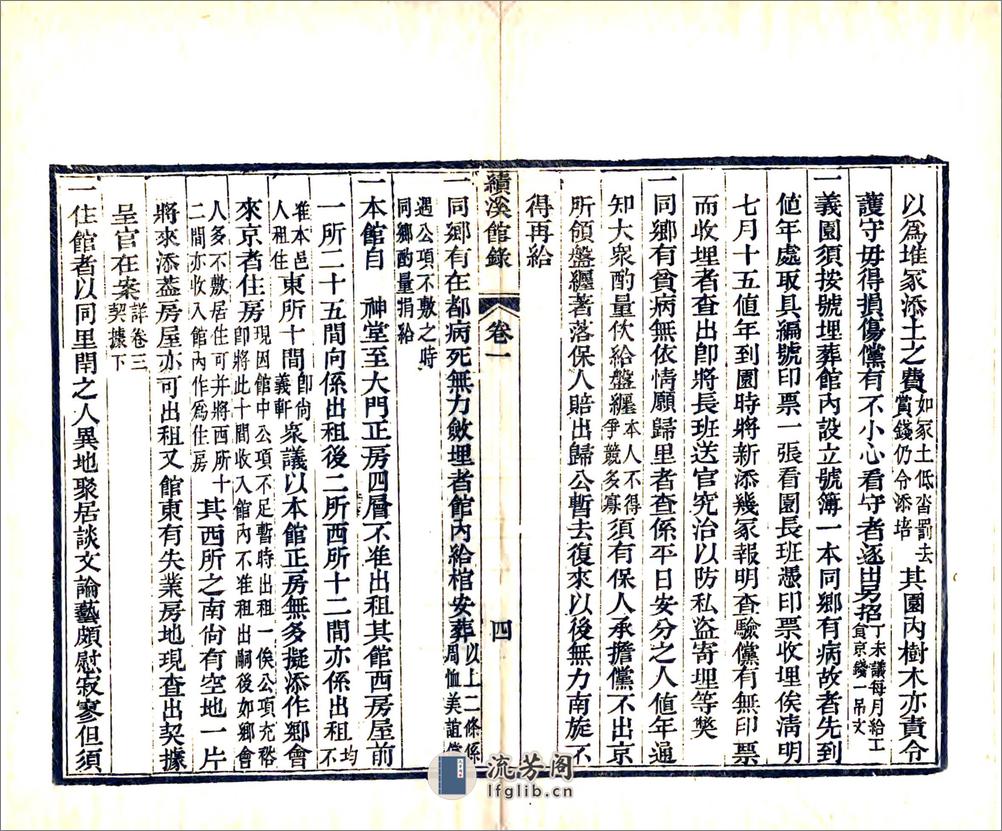 以爲堆冢添土之費如冢土低沓罰去賞錢仍令添培其園內樹木亦責令
護守毋得損傷儻有不小心看守者逐出另招丁未議每月給工食京錢一吊文
一義園須按號埋葬館內設立號簿一本同鄉有病故者先到
値年處取具編號印票一張看園長班憑印票收埋俟淸明
七月十五値年到園時將新添幾冢報明查驗儻有無印票
而收埋者查出卽將長班送官究治以防私盜寄埋等獘
一同鄉有貧病無依情願歸里者查係平日安分之人値年通
知大衆酌量佽給盤纏本人不得爭競多寡須有保人承擔儻不出京
所領盤纏著落保人賠出歸公暫去復來以後無力南旋不
得再給
績溪館錄 卷一 四
一同鄉有在都病死無力斂埋者館內給棺安葬以上二條係周恤美誼儻
遇公項不敷之時同鄉酌量捐給
一本館自 神堂至大門正房四層不准出租其館西房屋前
一所二十五間向係出租後二所西所十二間亦係出租均不
准本邑人租住東所十間卽尙義軒衆議以本館正房無多擬添作鄉會
來京者住房現因館中公項不足暫時出租一俟公項充裕卽將此十間收入館內不准租出嗣後如鄉會
人多不敷居住可并將西所十二間亦收入館內作爲住房其西所之南尙有空地一片
將來添葢房屋亦可出租又館東有失業房地現查出契據
呈官在案詳卷三契據下
一住館者以同里閈之人異地聚居談文論藝頗慰寂寥但須
流芳阁
lfglib.cn